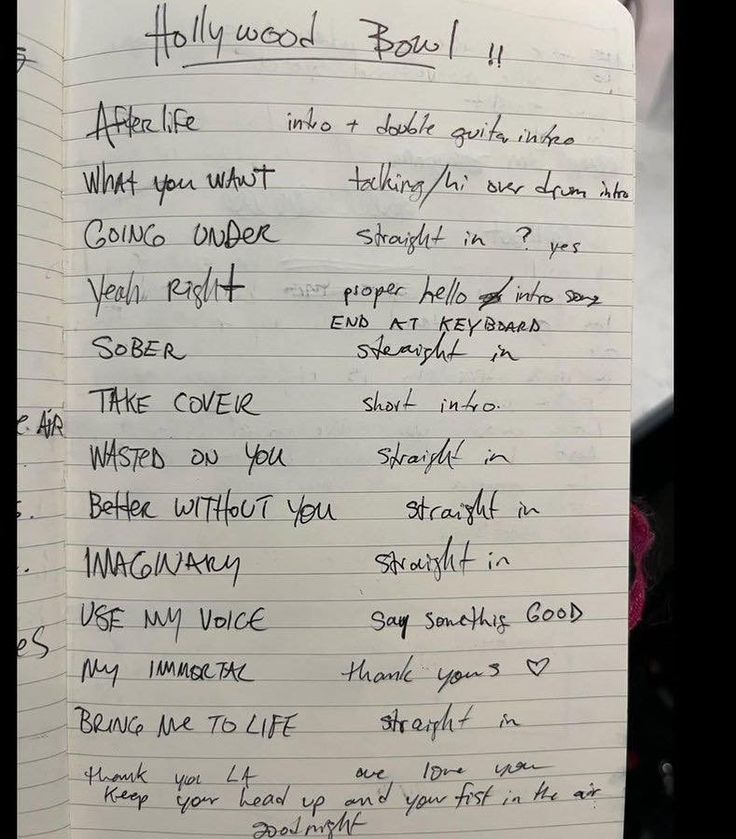 Hollywood Bowl !!
Afterlife intro + double guitar intro
What you want talking/hi over drum intro
GOING UNDER straight in ? yes
Yeah Right proper hello intro song
END AT KEYBOARD
SOBER straight in
TAKE COVER short intro.
e. AIR
WASTED ON YOU straight in
Better WITHOUT YOU straight in
IMAGINARY straight in
USE MY VOICE Say somethig GOOD
es
My IMMORTAL thank yous ♡
BRING ME TO LIFE straight in
thank you LA we love you
Keep your head up and your fist in the air
goodnight